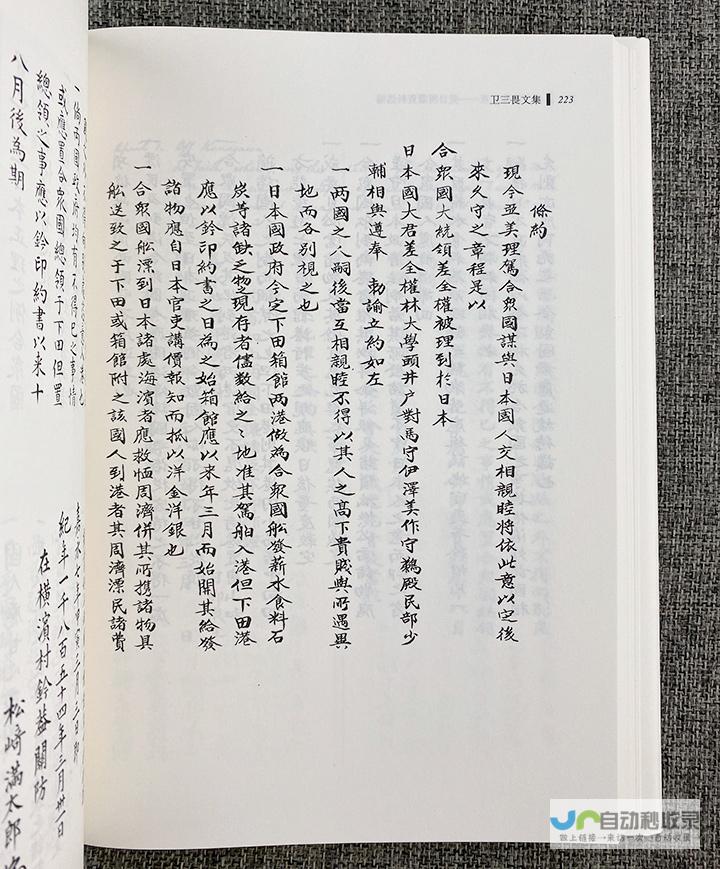 卫三畏文集 223
條約
現今亞美理駕合衆國謀與日本國人交相親睦將依此意以定後
來久守之章程是以
合衆國大統領差全權被理到於日本
日本國大君差全權林大學頭井戶對馬守伊澤美作守鵜殿民部少
輔相與遵奉 勅諭立約如左
一两國之人嗣後當互相親睦不得以其人之髙下貴賤與所遇異
地而各別視之也
一日本國政府今定下田箱館两港做為合衆國船發薪水食料石
炭等諸缺乏物現存者儘數給之〻地准其駕舶入港但下田港
應以鈐印約書之日為之始箱館應以来年三月而始開其給發
諸物應自日本官吏講價報知而抵以洋金洋銀也
一合衆國舩漂到日本諸處海濱者應救恤周濟併其所携諸物具
舩送致之于下田或箱館附之該國人到港者其周濟漂民諸費
一倘两國政府均有不得已之事情
或應置合衆國總領于下田但置
總領之事應以鈐印約書以来十
八月後為期
嘉永七年甲寅三月三日即
紀年一千八百五十四年三月卅一日
在橫濱村鈐蓋關防
松﨑滿太郎
自动秒收录
做上链接→来访一次→自动收录